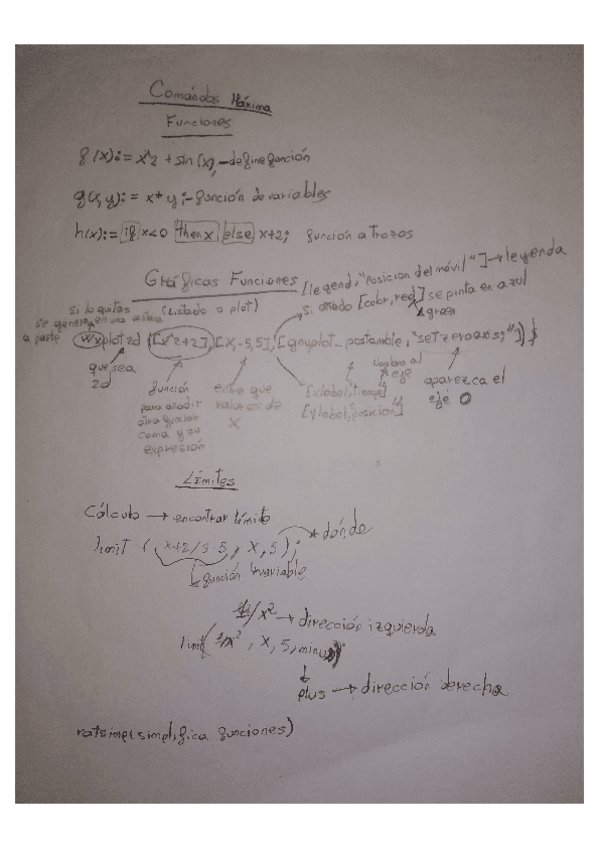 Comandos Máxima
Funciones
f(x):= x^2 + sin(x); - define función
g(x,y):= x*y; - función de variables
h(x):= if x<0 then x else x+2; función a trozos
Gráficas Funciones
[legend, "Posición del móvil"] → leyenda
si lo quitas (Listado a plot) si añado [color, red] se pinta en azul
se genera en una ventana green
a parte wxplot2d ([x^2+2], [x,-5,5], [gnuplot_postamble, "set zeroaxis;"]) $
que sea
2d
función
para añadir
otra función
coma y su
expresión
entre que
valores de
x
nombre al
eje
[xlabel, "tiempo"]
[ylabel, "posicion"]
aparezca el
eje 0
Límites
Cálculo → encontrar límite
limit (x+2/3-5, x, 5); → dónde
función variable
1/x² → dirección izquierda
limit( 1/x², x, 5, minus)
plus → dirección derecha
ratsimp(simplifica funciones)